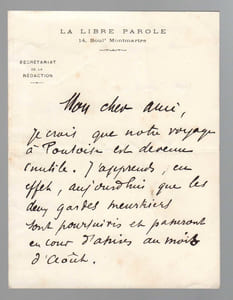 LA LIBRE PAROLE
14, Boulᵈ Montmartre
SECRÉTARIAT
DE LA
RÉDACTION
Mon cher ami,
je crois que notre voyage
à Pontoise est devenu
inutile. J'apprends, en
effet, aujourd'hui que les
deux gardes meurtriers
sont poursuivis et passeront
en cour d'assises au mois
d'Août.